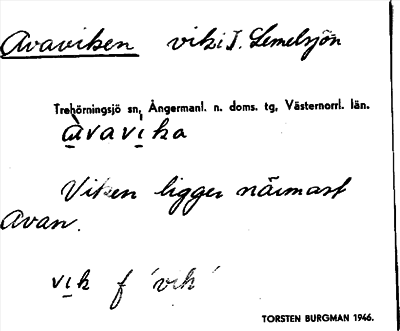 Avaviken vik i I. Lemelsjön
Trehörningsjö sn, Ångermanl. n. doms. tg, Västernorrl. län.
àvavika
Viken ligger närmast
Avan.
vik f 'vik'
TORSTEN BURGMAN 1946.